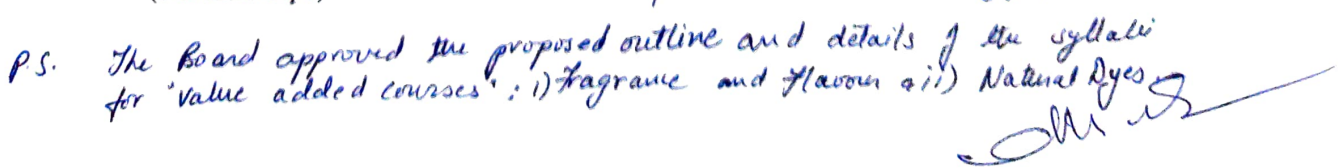 P.S. The Board approved the proposed outline and details of the syllabi
for "value added courses" : i) Fragrance and Flavour & ii) Natural Dyes